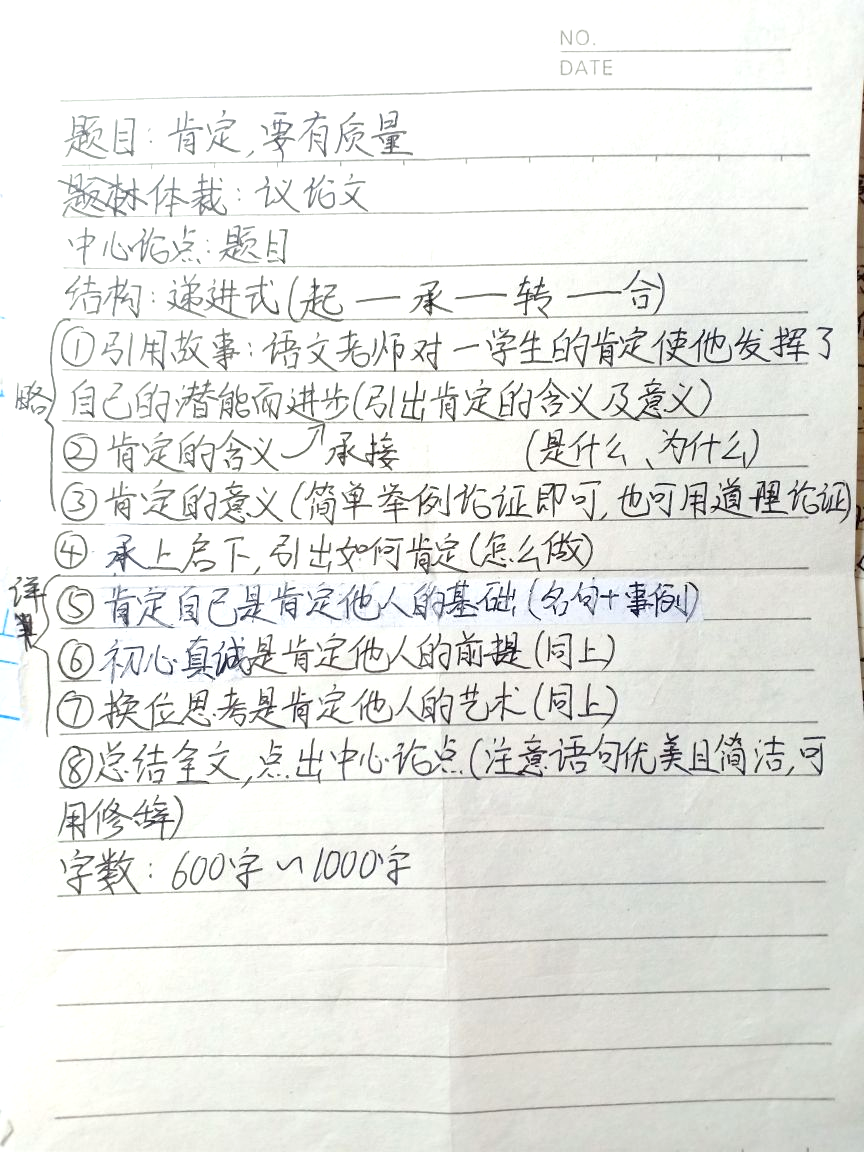 NO.
DATE
题目：肯定，要有质量
体裁：议论文
中心论点：题目
结构：递进式（起—承—转—合）
①引用故事：语文老师对一学生的肯定使他发挥了
略
自己的潜能而进步（引出肯定的含义及意义）
②肯定的含义 承接 （是什么、为什么）
③肯定的意义（简单举例论证即可，也可用道理论证）
④承上启下，引出如何肯定（怎么做）
详
⑤肯定自己是肯定他人的基础（名句+事例）
⑥初心真诚是肯定他人的前提（同上）
⑦换位思考是肯定他人的艺术（同上）
⑧总结全文，点出中心论点（注意语句优美且简洁，可
用修辞）
字数：600字~1000字